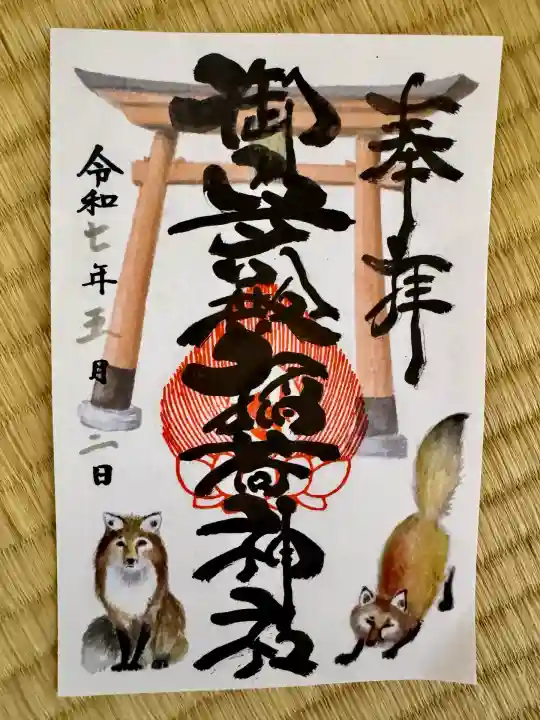 奉拝
御出稲荷神社
令和七年五月二日